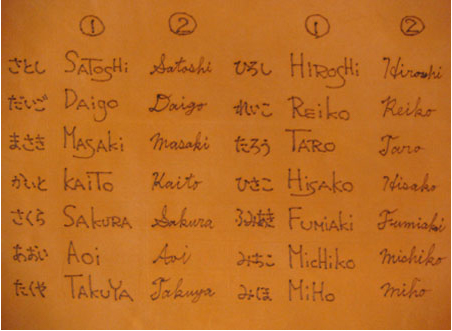 ① ② ① ②
さとし SAToSHi Satoshi ひろし HIROSHi Hiroshi
だいご DAigo Daigo れいこ REiKO Reiko
まさき MASAKi Masaki たろう TARO Taro
かいと KAiTo Kaito ひさこ HiSAKO Hisako
さくら SAKURA Sakura ふみあき FUMiAKi Fumiaki
あおい AOi Aoi みちこ MiCHiKO Michiko
たくや TAKUYA Takuya みほ MiHO Miho